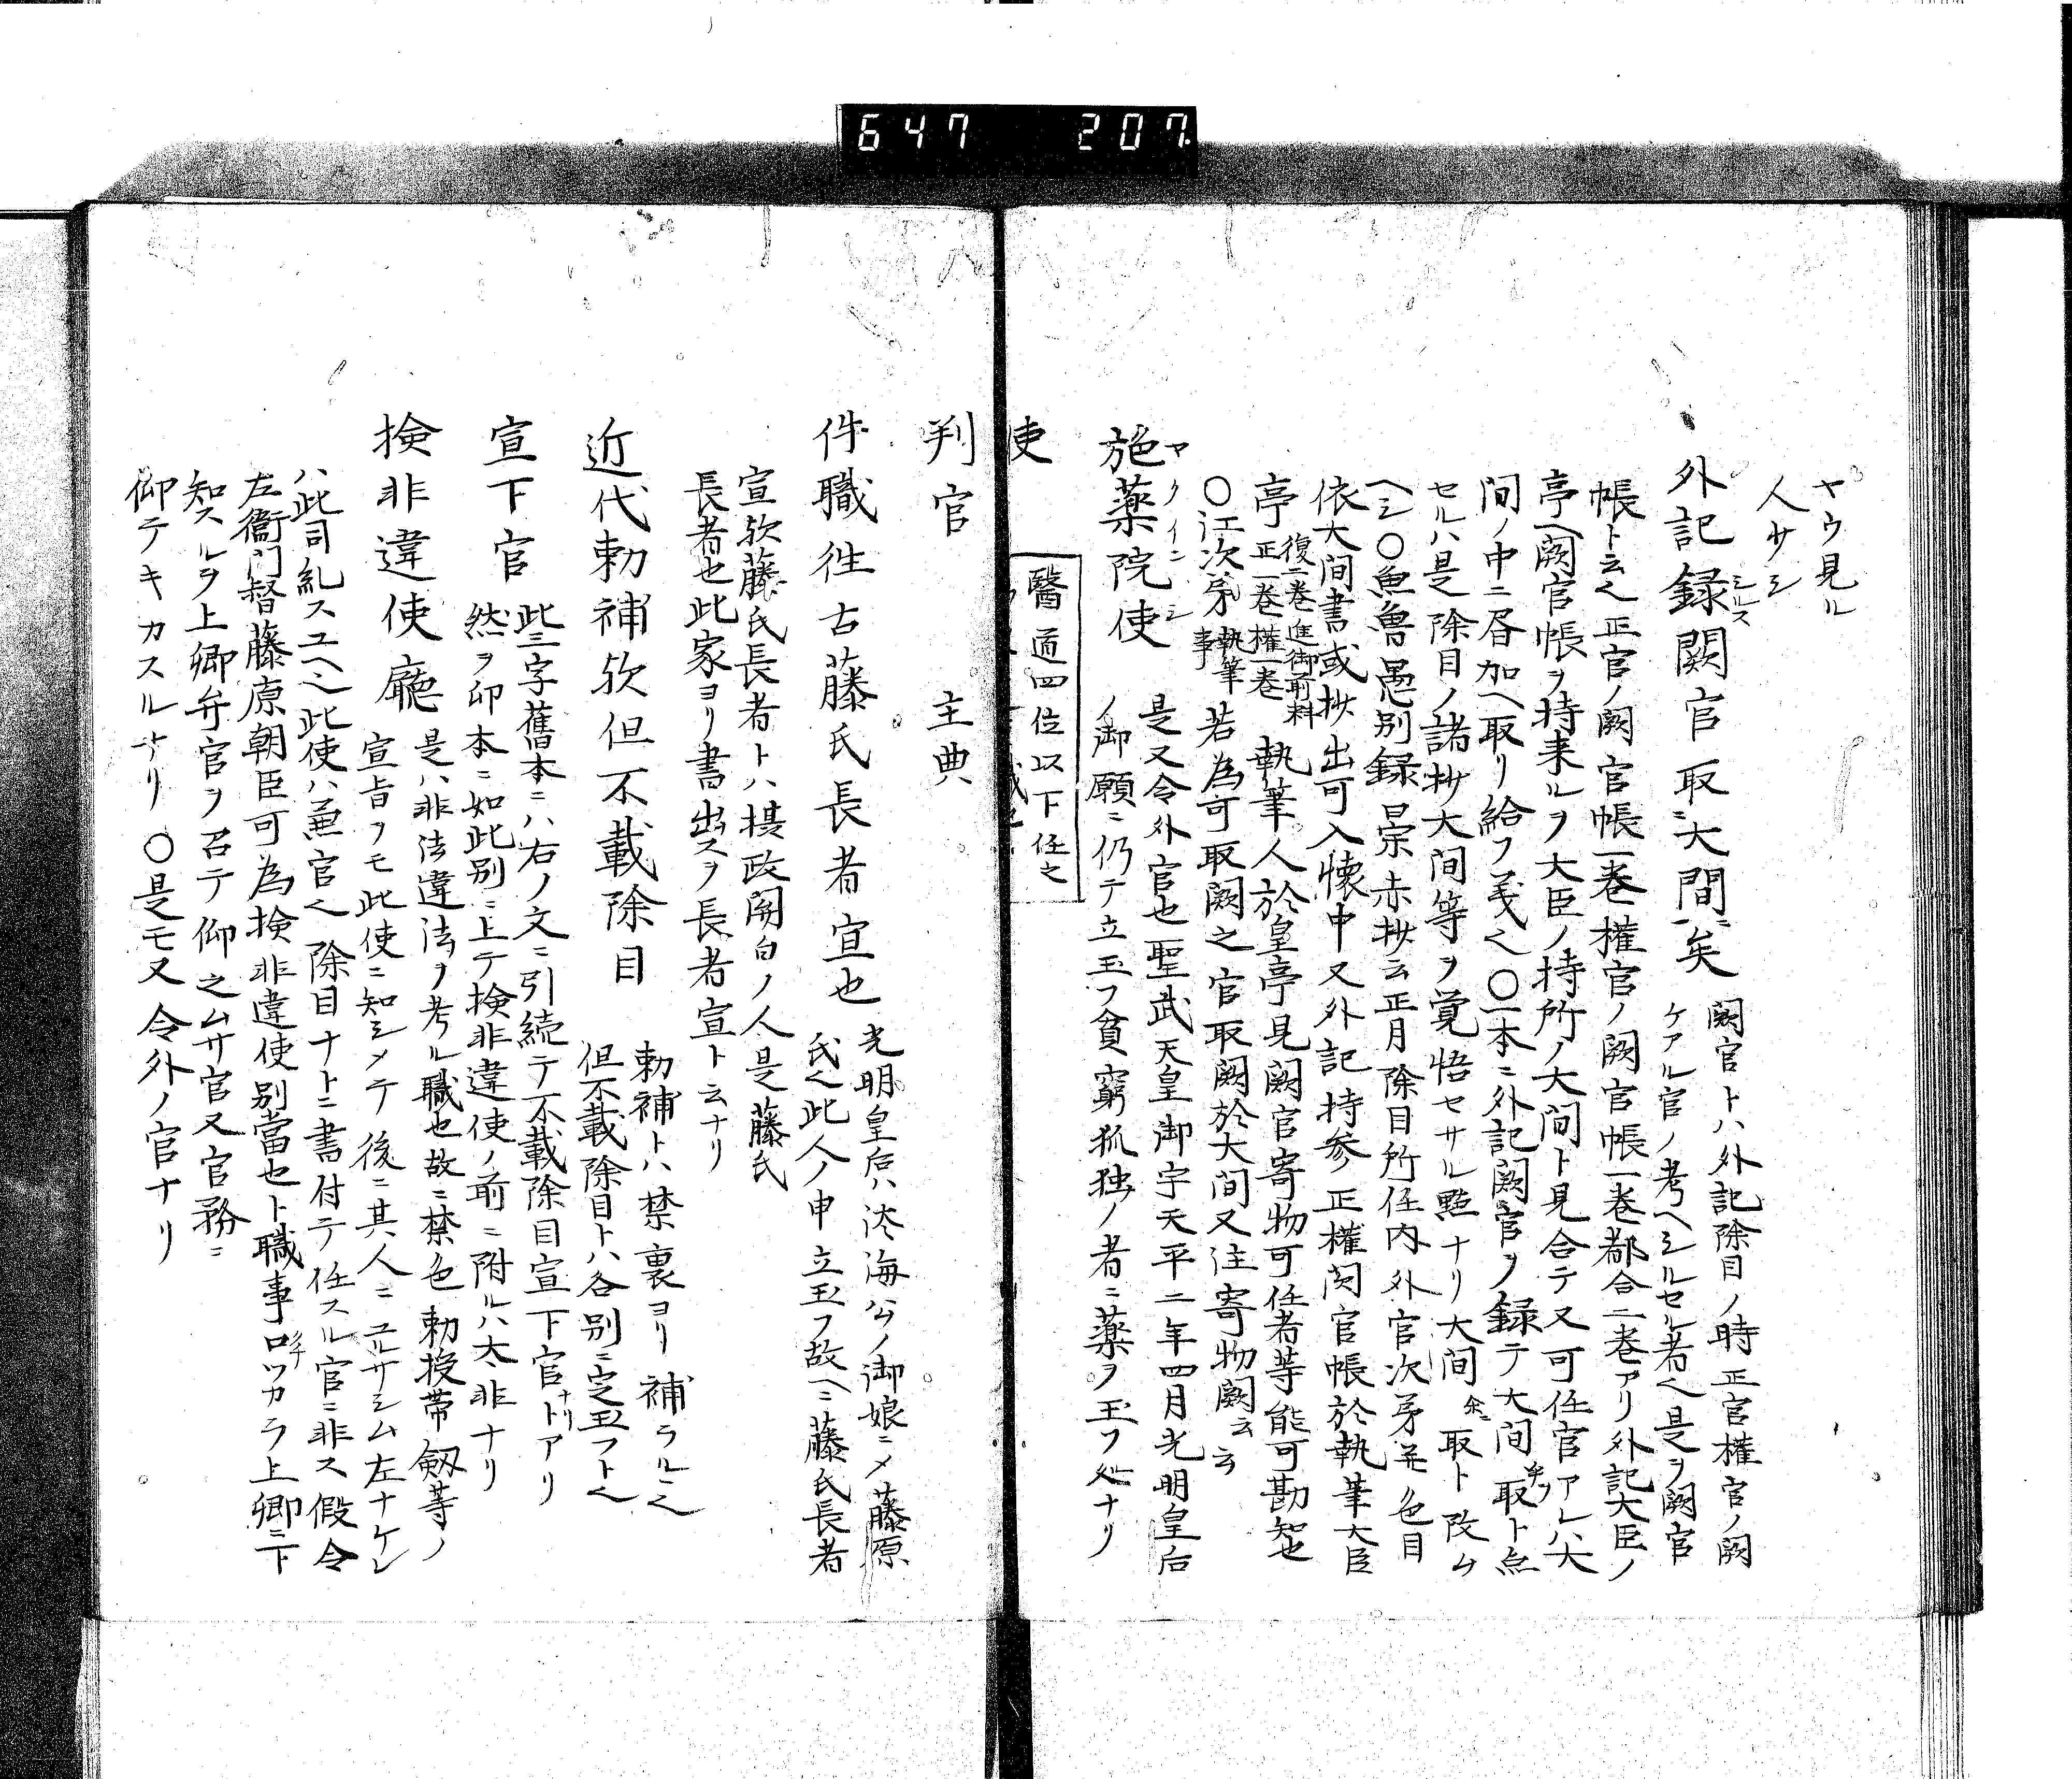 647 207.
ヤウ見ル
人サシ
外記録闕官取ニ大間ニ矣 闕官トハ外記除目ノ時正官權官ノ闕
ケアル官ノ考ヘシルセル者也是ヲ闕官
帳ト云也正官ノ闕官帳一巻權官ノ闕官帳一巻都合二巻アリ外記大臣ノ
亭ヘ闕官帳ヲ持来ルヲ大臣ノ持所ノ大間ト見合テ又可任官アレハ大
間ノ中ニ書加ヘ取リ給フ義也〇一本ニ外記闕官ヲ録テ大間 取ト点
セルハ是除目ノ諸抄大間等ヲ覚悟セサル點ナリ大間 取ト改ム
ヘシ〇魚魯愚別録 赤抄云正月除目所任内外官次苐并色目
依大間書或抄出可入懐中又外記持参正權闕官帳於執筆大臣
亭 復二巻進御前料 正一巻權一巻 執筆人於里亭見闕官寄物可任者等能可勘知也
〇江次苐 執筆事 若為可取闕之官取闕於大間又注寄物闕云云
施薬院使 ヤクインシ 是又令外官也聖武天皇御宇天平二年四月光明皇后
ノ御願ニ仍テ立玉フ貧窮孤独ノ者ニ薬ヲ玉フ処ナリ
使 醫道四位以下任之
判官 主典
件職徃古藤氏長者宣也 光明皇后ハ淡海公ノ御娘ニメ藤原
氏也此人ノ申立玉フ故ヘニ藤氏長者
宣欤藤氏長者トハ摂政関白ノ人是藤氏
長者也此家ヨリ書出スヲ長者宣ト云ナリ
近代勅補欤但不載除目 勅補トハ禁裏ヨリ補ラルヽ也
但不載除目トハ各別ニ定玉フト也
宣下官 此三字舊本ニハ右ノ文ニ引続テ不載除目宣下官ナリトアリ
然ヲ印本ニ如此別ニ上テ検非違使ノ前ニ附ルハ大非ナリ
検非違使廰 是ハ非法違法ヲ考ル職也故ニ禁色勅授帯劔等ノ
宣旨ヲモ此使ニ知シメテ後ニ其人ニユルサシム左ナケレ
ハ此司糺スユヘ也此使ハ兼官也除目ナトニ書付テ任スル官ニ非ス假令
左衞門督藤原朝臣可為検非違使別當也ト職事口ツカラ上卿ニ下
知スルヲ上卿弁官ヲ召テ仰之ム弁官又官務ニ
仰テキカスルナリ〇是モ又令外ノ官ナリ